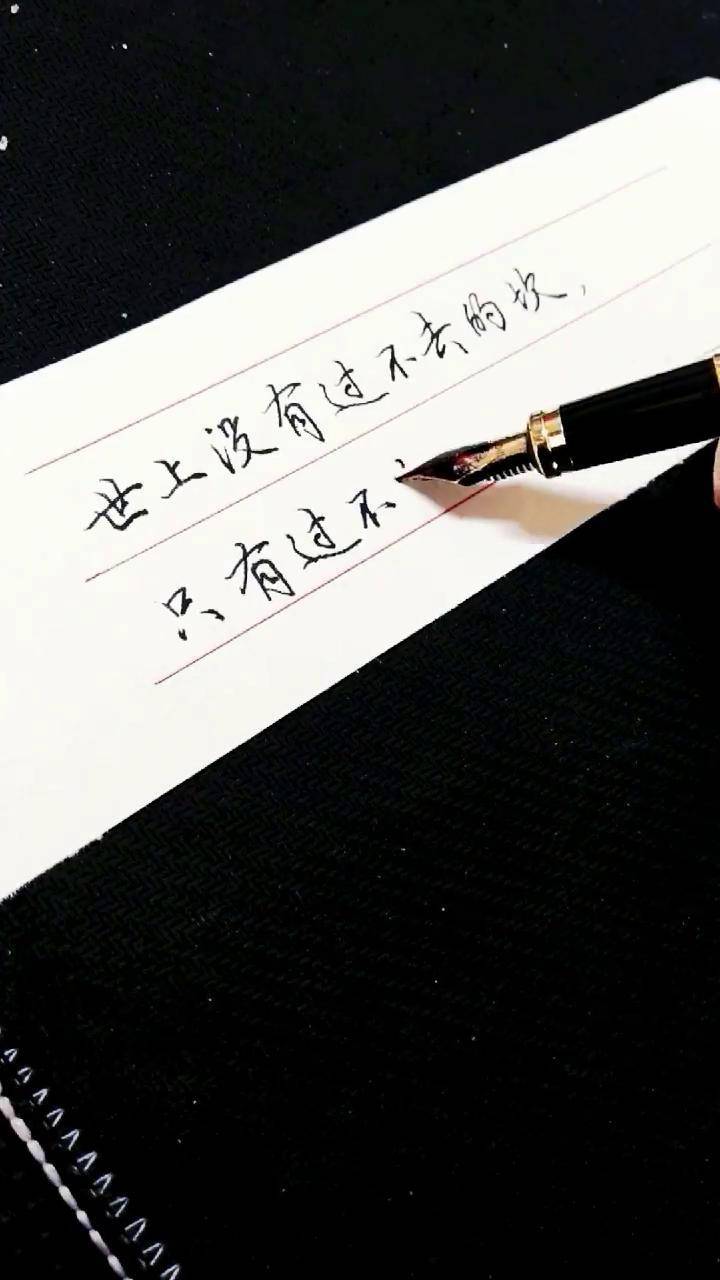 世上没有过不去的坎，
只有过不